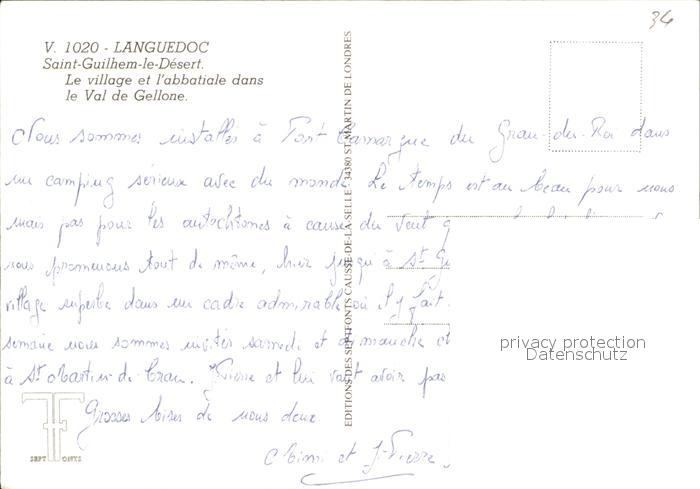 34
V. 1020 - LANGUEDOC
Saint-Guilhem-le-Désert.
Le village et l'abbatiale dans
le Val de Gellone.
Nous sommes installés à Port Camargue du Grau-du-Roi dans
un camping sérieux avec du monde. Le temps est au beau pour nous
mais pas pour les autochtones à cause du vent
nous promenons tout de même, hier jusqu'à St Gu
village superbe dans un cadre admirable où il y fait
semaine nous sommes invités samedi et dimanche et
à St Martin de Crau. et lui vont avoir pas
Grosses bises de nous deux
Mimi et J-Pierre
EDITIONS DES SEPT-FONTS CAUSSE-DE-LA-SELLE - 34380 ST-MARTIN DE LONDRES
SEPT FONTS
privacy protection
Datenschutz